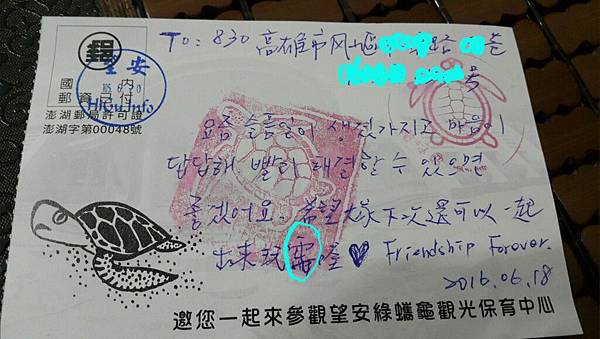 TO: 830 高雄市凤山區 路 巷
號
郵
國內
郵資已付
澎湖郵局許可證
澎湖字第00048號
望安
요즘 슬픔일이 생겼가지고 마음이
답답해 빨리 해결할 수 있으면
좋겠어요. 希望大家下次還可以一起
出來玩 喔♥ Friendship Forever.
2016.06.18
邀您一起來參觀望安綠蠵龜觀光保育中心